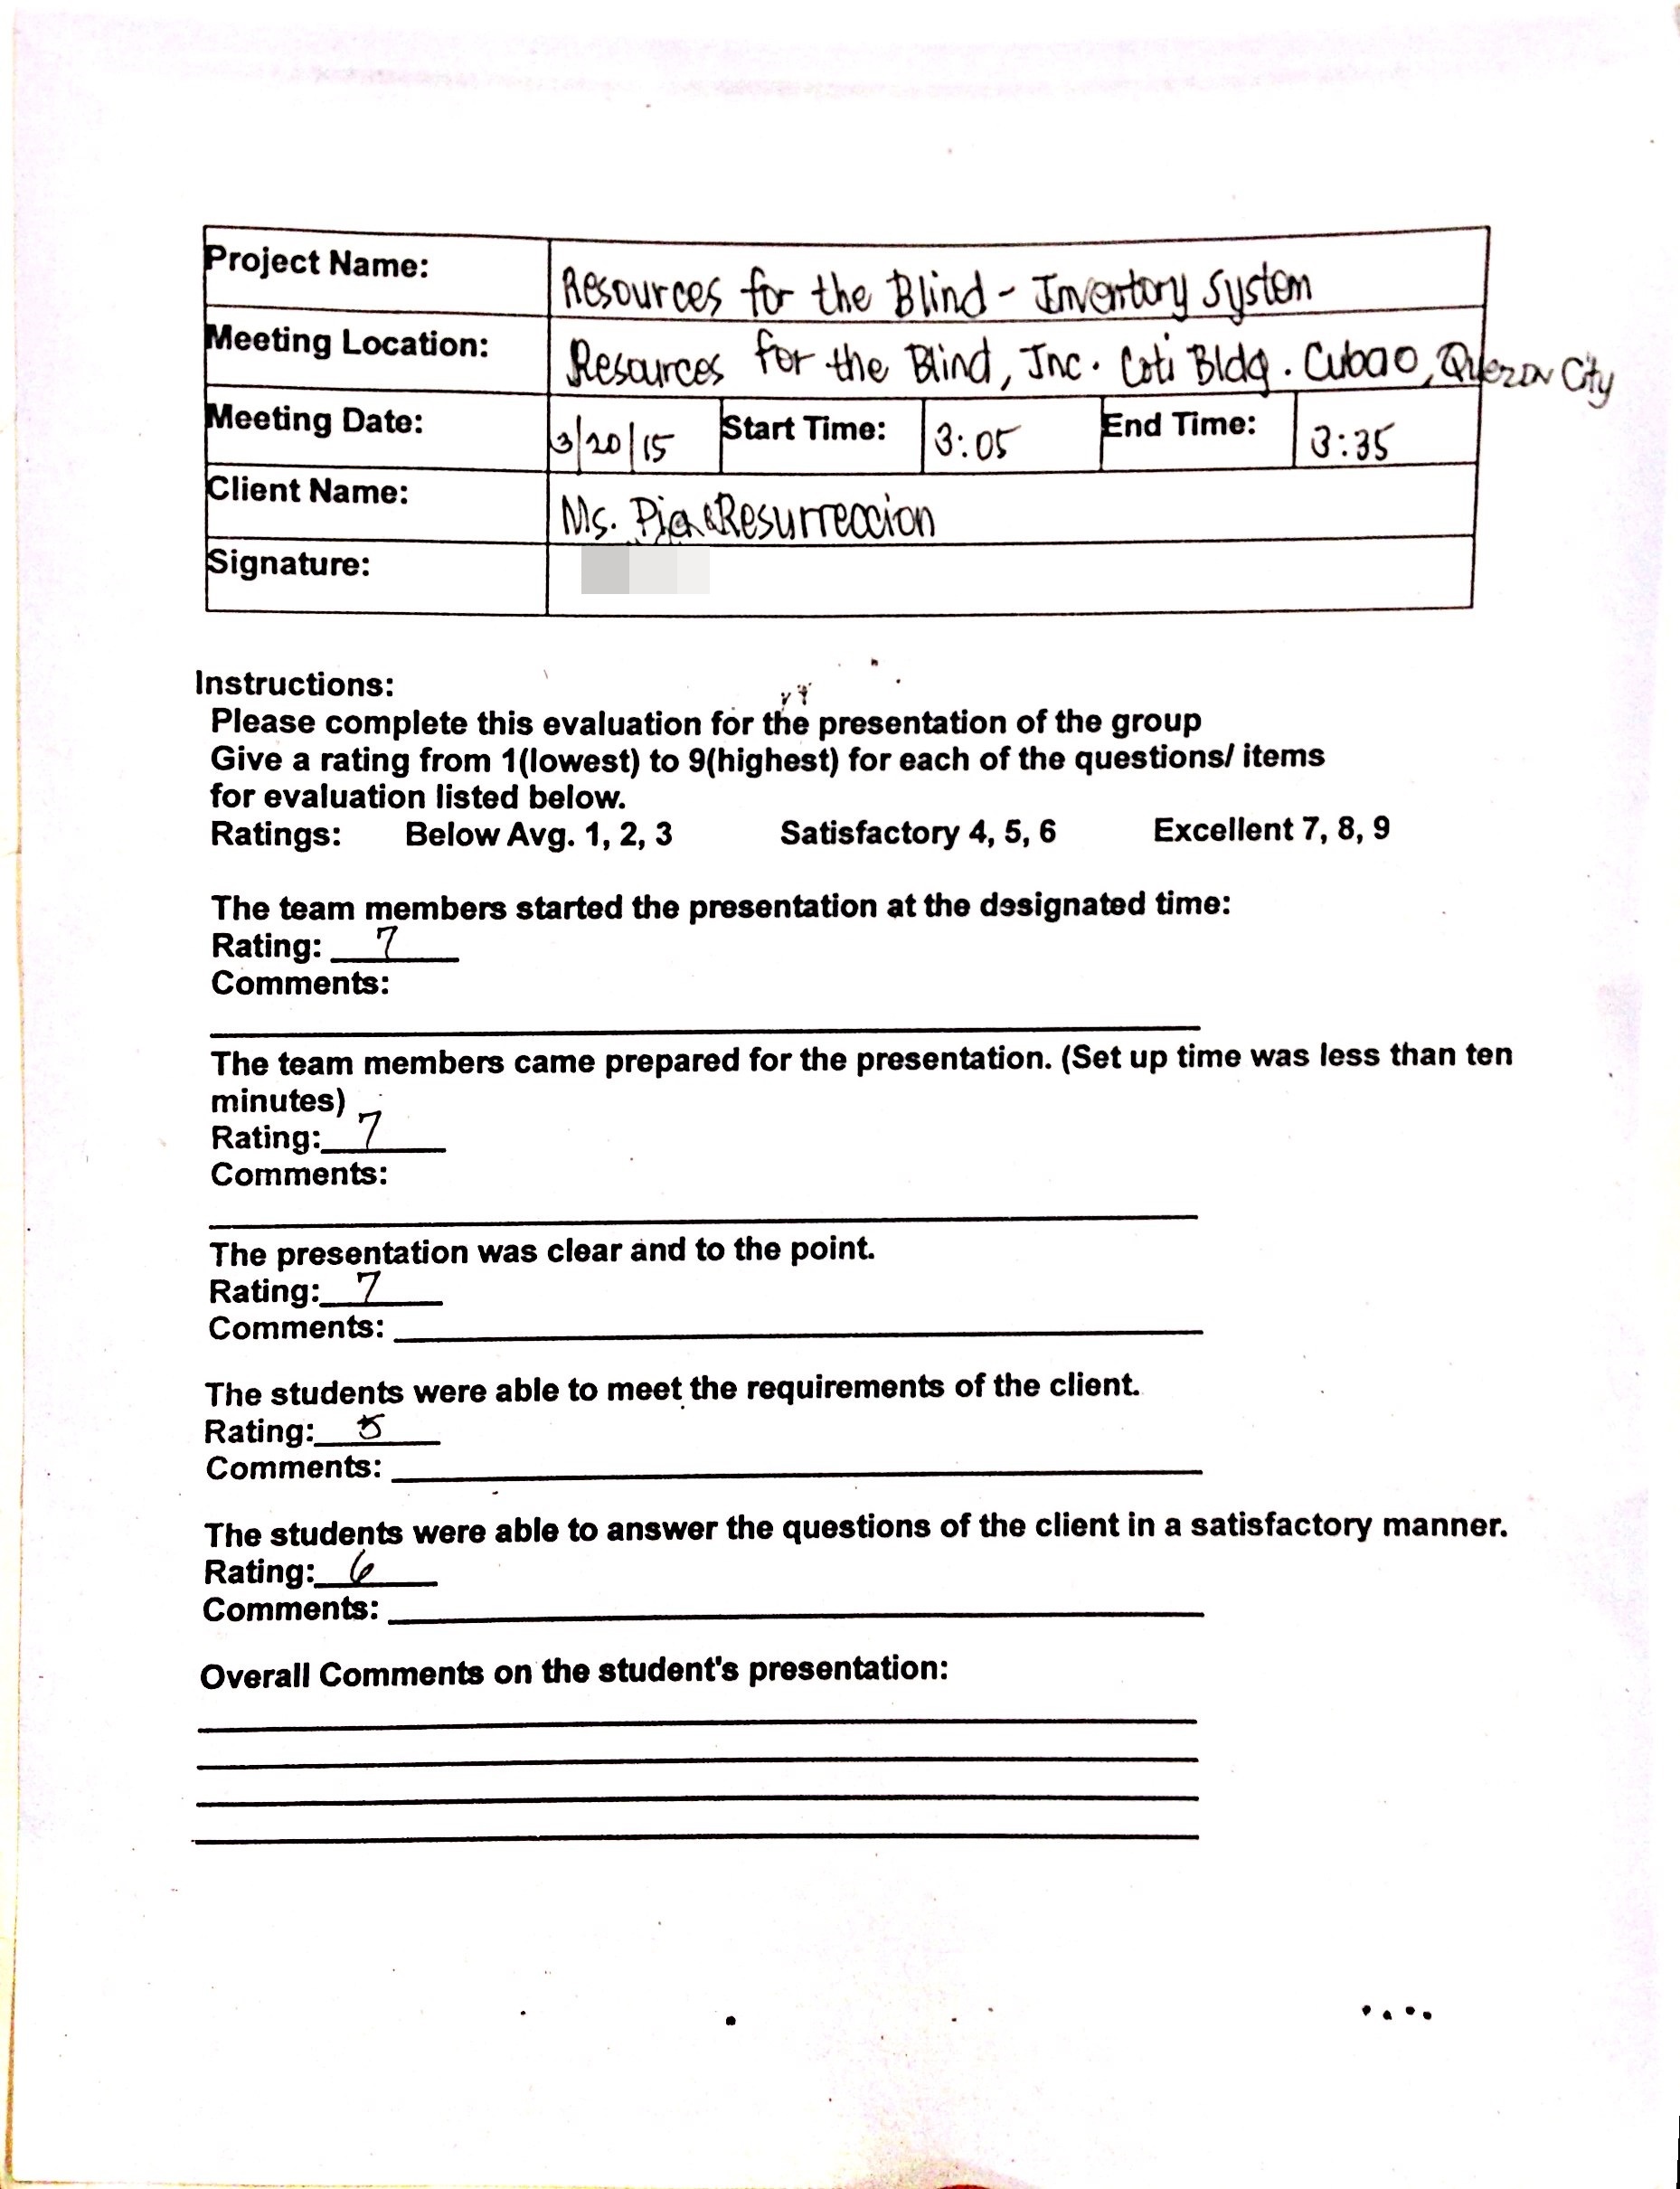 Project Name: Resources for the Blind - Inventory System
Meeting Location: Resources for the Blind, Inc. Coti Bldg. Cubao, Quezon City
Meeting Date: 3/20/15 Start Time: 3:05 End Time: 3:35
Client Name: Ms. Pia Resurreccion
Signature:
Instructions:
Please complete this evaluation for the presentation of the group
Give a rating from 1(lowest) to 9(highest) for each of the questions/ items
for evaluation listed below.
Ratings: Below Avg. 1, 2, 3 Satisfactory 4, 5, 6 Excellent 7, 8, 9
The team members started the presentation at the designated time:
Rating: 7
Comments:
The team members came prepared for the presentation. (Set up time was less than ten
minutes)
Rating: 7
Comments:
The presentation was clear and to the point.
Rating: 7
Comments:
The students were able to meet the requirements of the client.
Rating: 5
Comments:
The students were able to answer the questions of the client in a satisfactory manner.
Rating: 6
Comments:
Overall Comments on the student's presentation: